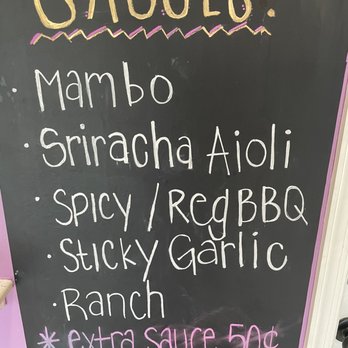 SAUCES:
· Mambo
· Sriracha Aioli
· Spicy / Red BBQ
· Sticky Garlic
· Ranch
* extra sauce 50¢